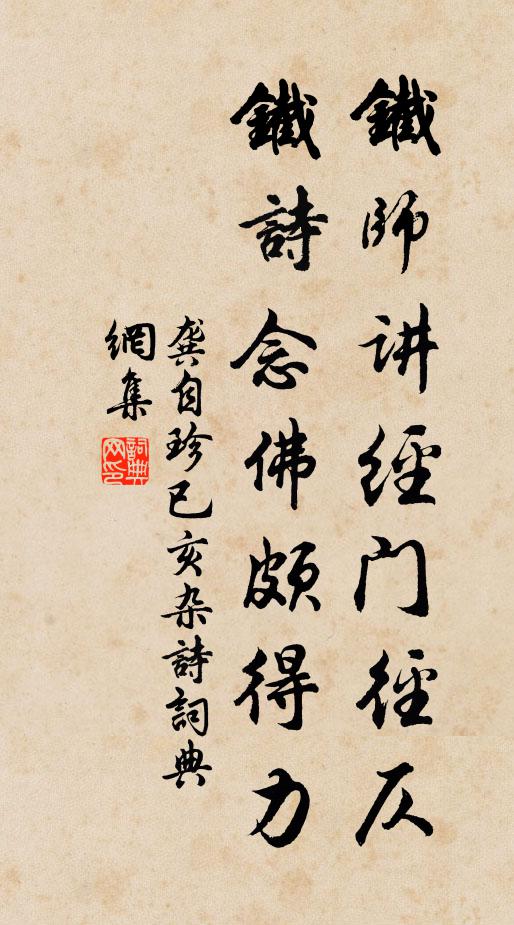 鐵師讲經门徑仄
鐵詩念佛頗得力
龚自珍己亥杂詩詞典
網集
詞典
网印